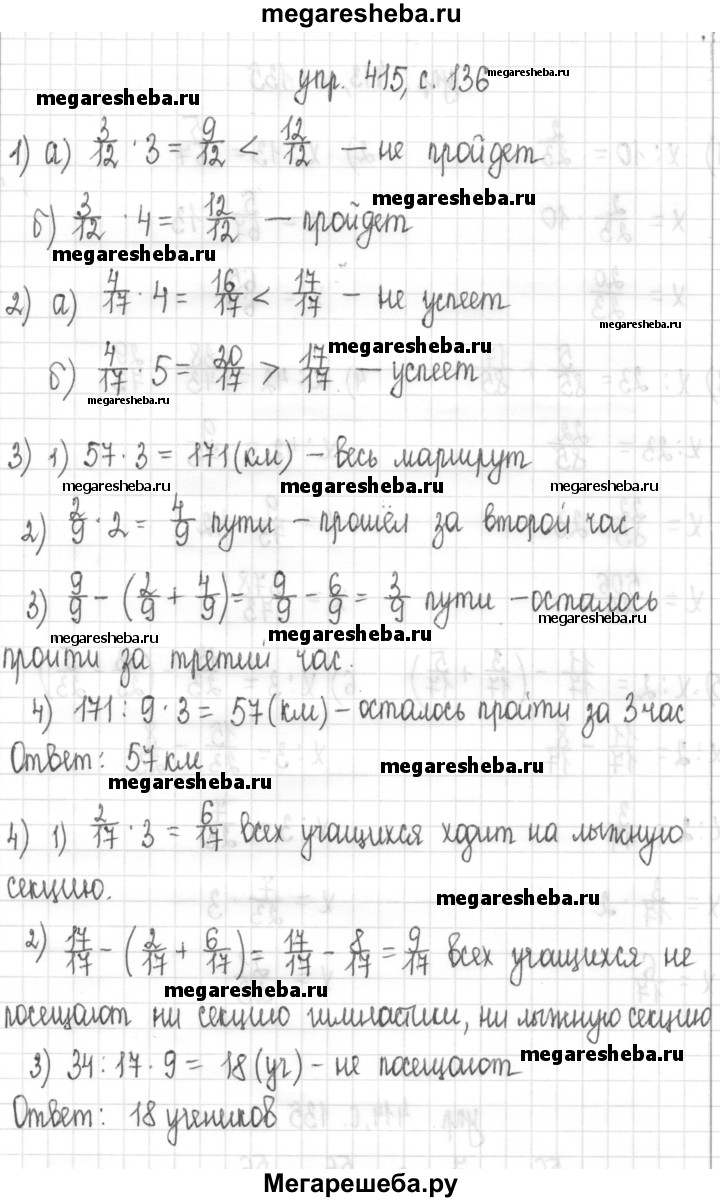 megaresheba.ru
упр. 415, с. 136
megaresheba.ru
megaresheba.ru
1) а) 3/12 · 3 = 9/12 < 12/12 — не пройдет
megaresheba.ru
б) 3/12 · 4 = 12/12 — пройдет
megaresheba.ru
2) а) 4/17 · 4 = 16/17 < 17/17 — не успеет
megaresheba.ru
megaresheba.ru
б) 4/17 · 5 = 20/17 > 17/17 — успеет
megaresheba.ru
3) 1) 57 · 3 = 171 (км) – весь маршрут
megaresheba.ru megaresheba.ru megaresheba.ru
2) 2/9 · 2 = 4/9 пути – прошёл за второй час
3) 9/9 – (2/9 + 4/9) = 9/9 – 6/9 = 3/9 пути – осталось
megaresheba.ru megaresheba.ru megaresheba.ru
пройти за третий час.
4) 171 : 9 · 3 = 57 (км) – осталось пройти за 3 час
Ответ: 57 км
megaresheba.ru megaresheba.ru
4) 1) 2/17 · 3 = 6/17 всех учащихся ходит на лыжную
секцию.
megaresheba.ru
2) 17/17 – (2/17 + 6/17) = 17/17 – 8/17 = 9/17 всех учащихся не
megaresheba.ru
посещают ни секцию гимнастики, ни лыжную секцию
3) 34 : 17 · 9 = 18 (уч) – не посещают
megaresheba.ru
Ответ: 18 учеников
Мегарешеба.ру